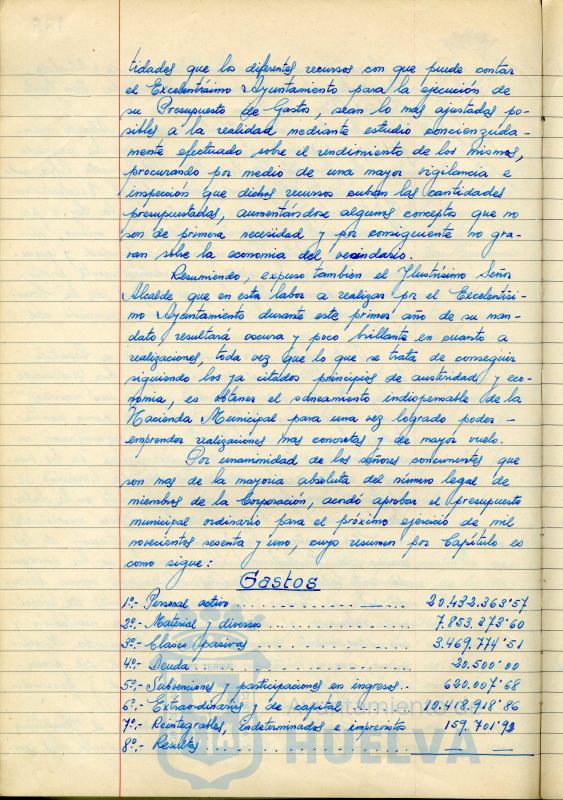 tidades que los diferentes recursos con que puede contar
el Excelentísimo Ayuntamiento para la ejecución de
su Presupuesto de Gastos, sean lo mas ajustadas po-
sibles a la realidad mediante estudio concienzuda-
mente efectuado sobre el rendimiento de los mismos,
procurando por medio de una mayor vigilancia e
inspección que dichos recursos cubran las cantidades
presupuestadas, aumentándose algunos conceptos que no
son de primera necesidad y por consiguiente no gra-
van sobre la economia del vecindario.
Resumiendo, expuso también el Ilustrísimo Señor
Alcalde que en esta labor a realizar por el Excelentísi-
mo Ayuntamiento durante este primer año de su man-
dato resultará oscura y poco brillante en cuanto a
realizaciones, toda vez que lo que se trata de conseguir
siguiendo los ya citados principios de austeridad y eco-
nomia, es obtener el saneamiento indispensable de la
Hacienda Municipal para una vez logrado poder -
emprender realizaciones mas concretas y de mayor vuelo.
Por unanimidad de los señores concurrentes que
son mas de la mayoria absoluta del número legal de
miembros de la Corporación, acordó aprobar el presupuesto
municipal ordinario para el próximo ejercicio de mil
novecientos sesenta y uno, cuyo resumen por Capítulo es
como sigue:
Gastos
1º.- Personal activo ............ 20.432.363'57
2º.- Material y diversos ............ 7.853.273'60
3º.- Clases pasivas ............ 3.469.774'51
4º.- Deuda ............ 20.500'00
5º.- Subvenciones y participaciones en ingresos.- 620.007'68
6º.- Extraordinarios y de capital ........ 10.418.918'86
7º.- Reintegrables, indeterminados e imprevistos 159.701'92
8º.- Resultas ............ — —
Ayuntamiento
HUELVA